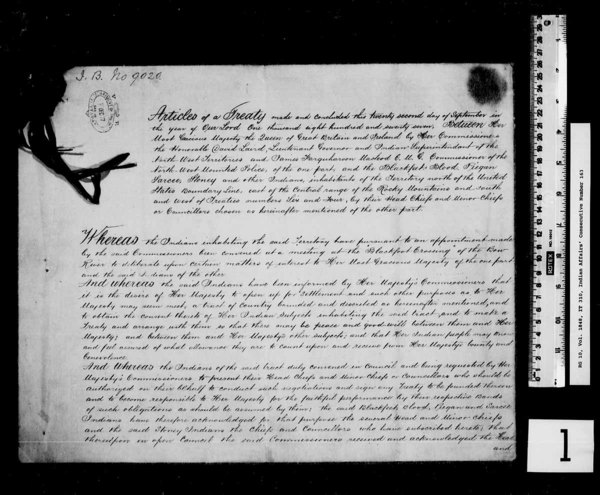 I. B. No 9020
Articles of a Treaty made and concluded this twenty second day of September in
the year of Our Lord One thousand eight hundred and seventy seven, Between Her
Most Gracious Majesty the Queen of Great Britain and Ireland by Her Commissioners
the Honorable David Laird, Lieutenant Governor and Indian Superintendent of the
North West Territories and James Farquharson Macleod C. M. G. Commissioner of the
North West Mounted Police, of the one part, and the Blackfeet, Blood, Piegan,
Sarcee, Stoney and other Indians, inhabitants of the Territory north of the United
States Boundary Line, east of the Central range of the Rocky Mountains and South
and West of Treaties numbers Six and Four, by their Head Chiefs and Minor Chiefs
or Councillors chosen as hereinafter mentioned of the other part.
Whereas the Indians inhabiting the said Territory have pursuant to an appointment made
by the said Commissioners been convened at a meeting at the "Blackfoot Crossing" of the Bow
River to deliberate upon certain matters of interest to Her Most Gracious Majesty of the one part
and the said Indians of the other
And whereas the said Indians have been informed by Her Majesty's Commissioners that
it is the desire of Her Majesty to open up for Settlement and such other purposes as to Her
Majesty may seem meet a tract of Country bounded and described as hereinafter mentioned, and
to obtain the consent thereto of Her Indian Subjects inhabiting the said tract and to make a
Treaty and arrange with them so that there may be peace and good will between them and Her
Majesty; and between them and Her Majesty's other subjects; and that Her Indian people may know
and feel assured of what allowance they are to count upon and receive from Her Majesty's bounty and
benevolence
And whereas the Indians of the said tract duly convened in Council and being requested by Her
Majesty's Commissioners to present their Head Chiefs and Minor Chiefs or Councillors who should be
authorized on their behalf to conduct such negotiations and sign any Treaty to be founded thereon
and to become responsible to Her Majesty for the faithful performance by their respective Bands
of such obligations as should be assumed by them; the said Blackfeet, Blood, Piegan and Sarcee
Indians have therefore acknowledged for that purpose the several Head and Minor Chiefs
and the said Stoney Indians the Chiefs and Councillors who have subscribed hereto, that
thereupon in open Council the said Commissioners received and acknowledged the Head
and
RG 10, Vol. 1848, IT 310, Indian Affairs' Consecutive Number 163
ROTEX
1